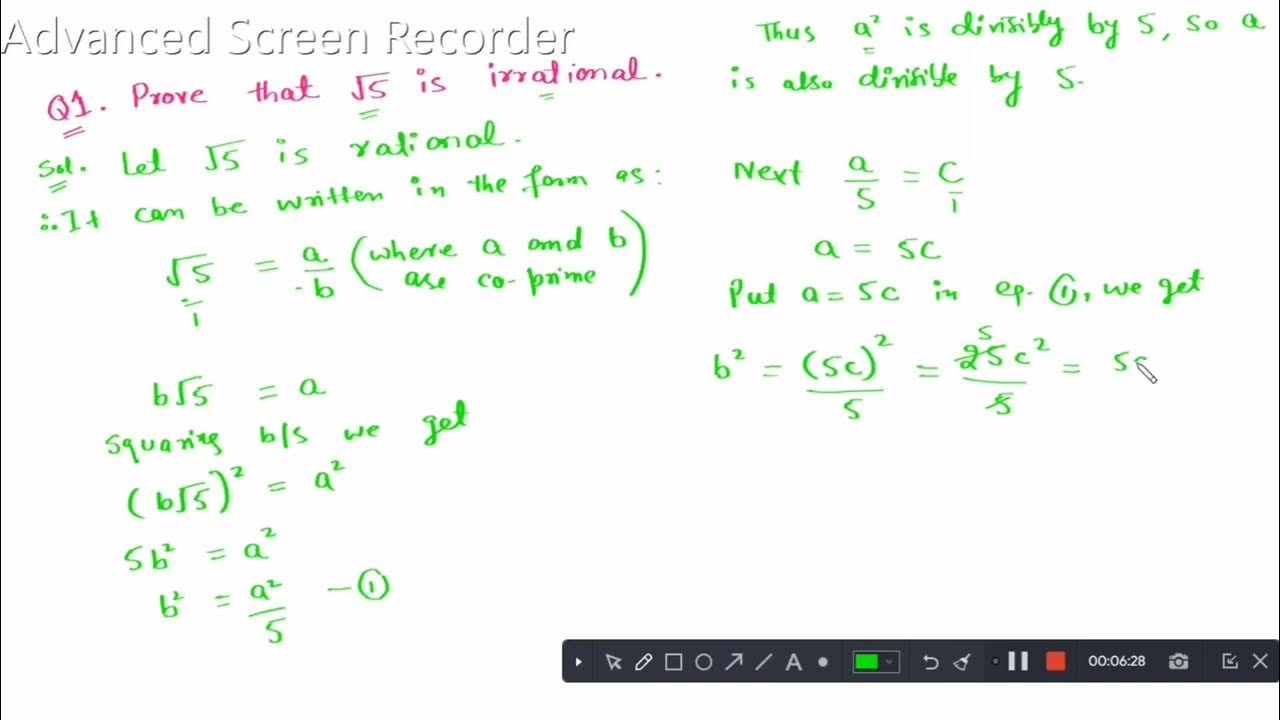 Advanced Screen Recorder
Q1. Prove that √5 is irrational.
Sol. Let √5 is rational.
∴ It can be written in the form as:
√5/1 = a/b (where a and b are co-prime)
b√5 = a
Squaring b/s we get
(b√5)² = a²
5b² = a²
b² = a²/5 — ①
Thus a² is divisibly by 5, so a
is also divisible by 5.
Next a/5 = c/1
a = 5c
Put a = 5c in eq. ①, we get
b² = (5c)²/5 = 5 25c²/5 = 5c
A
00:06:28